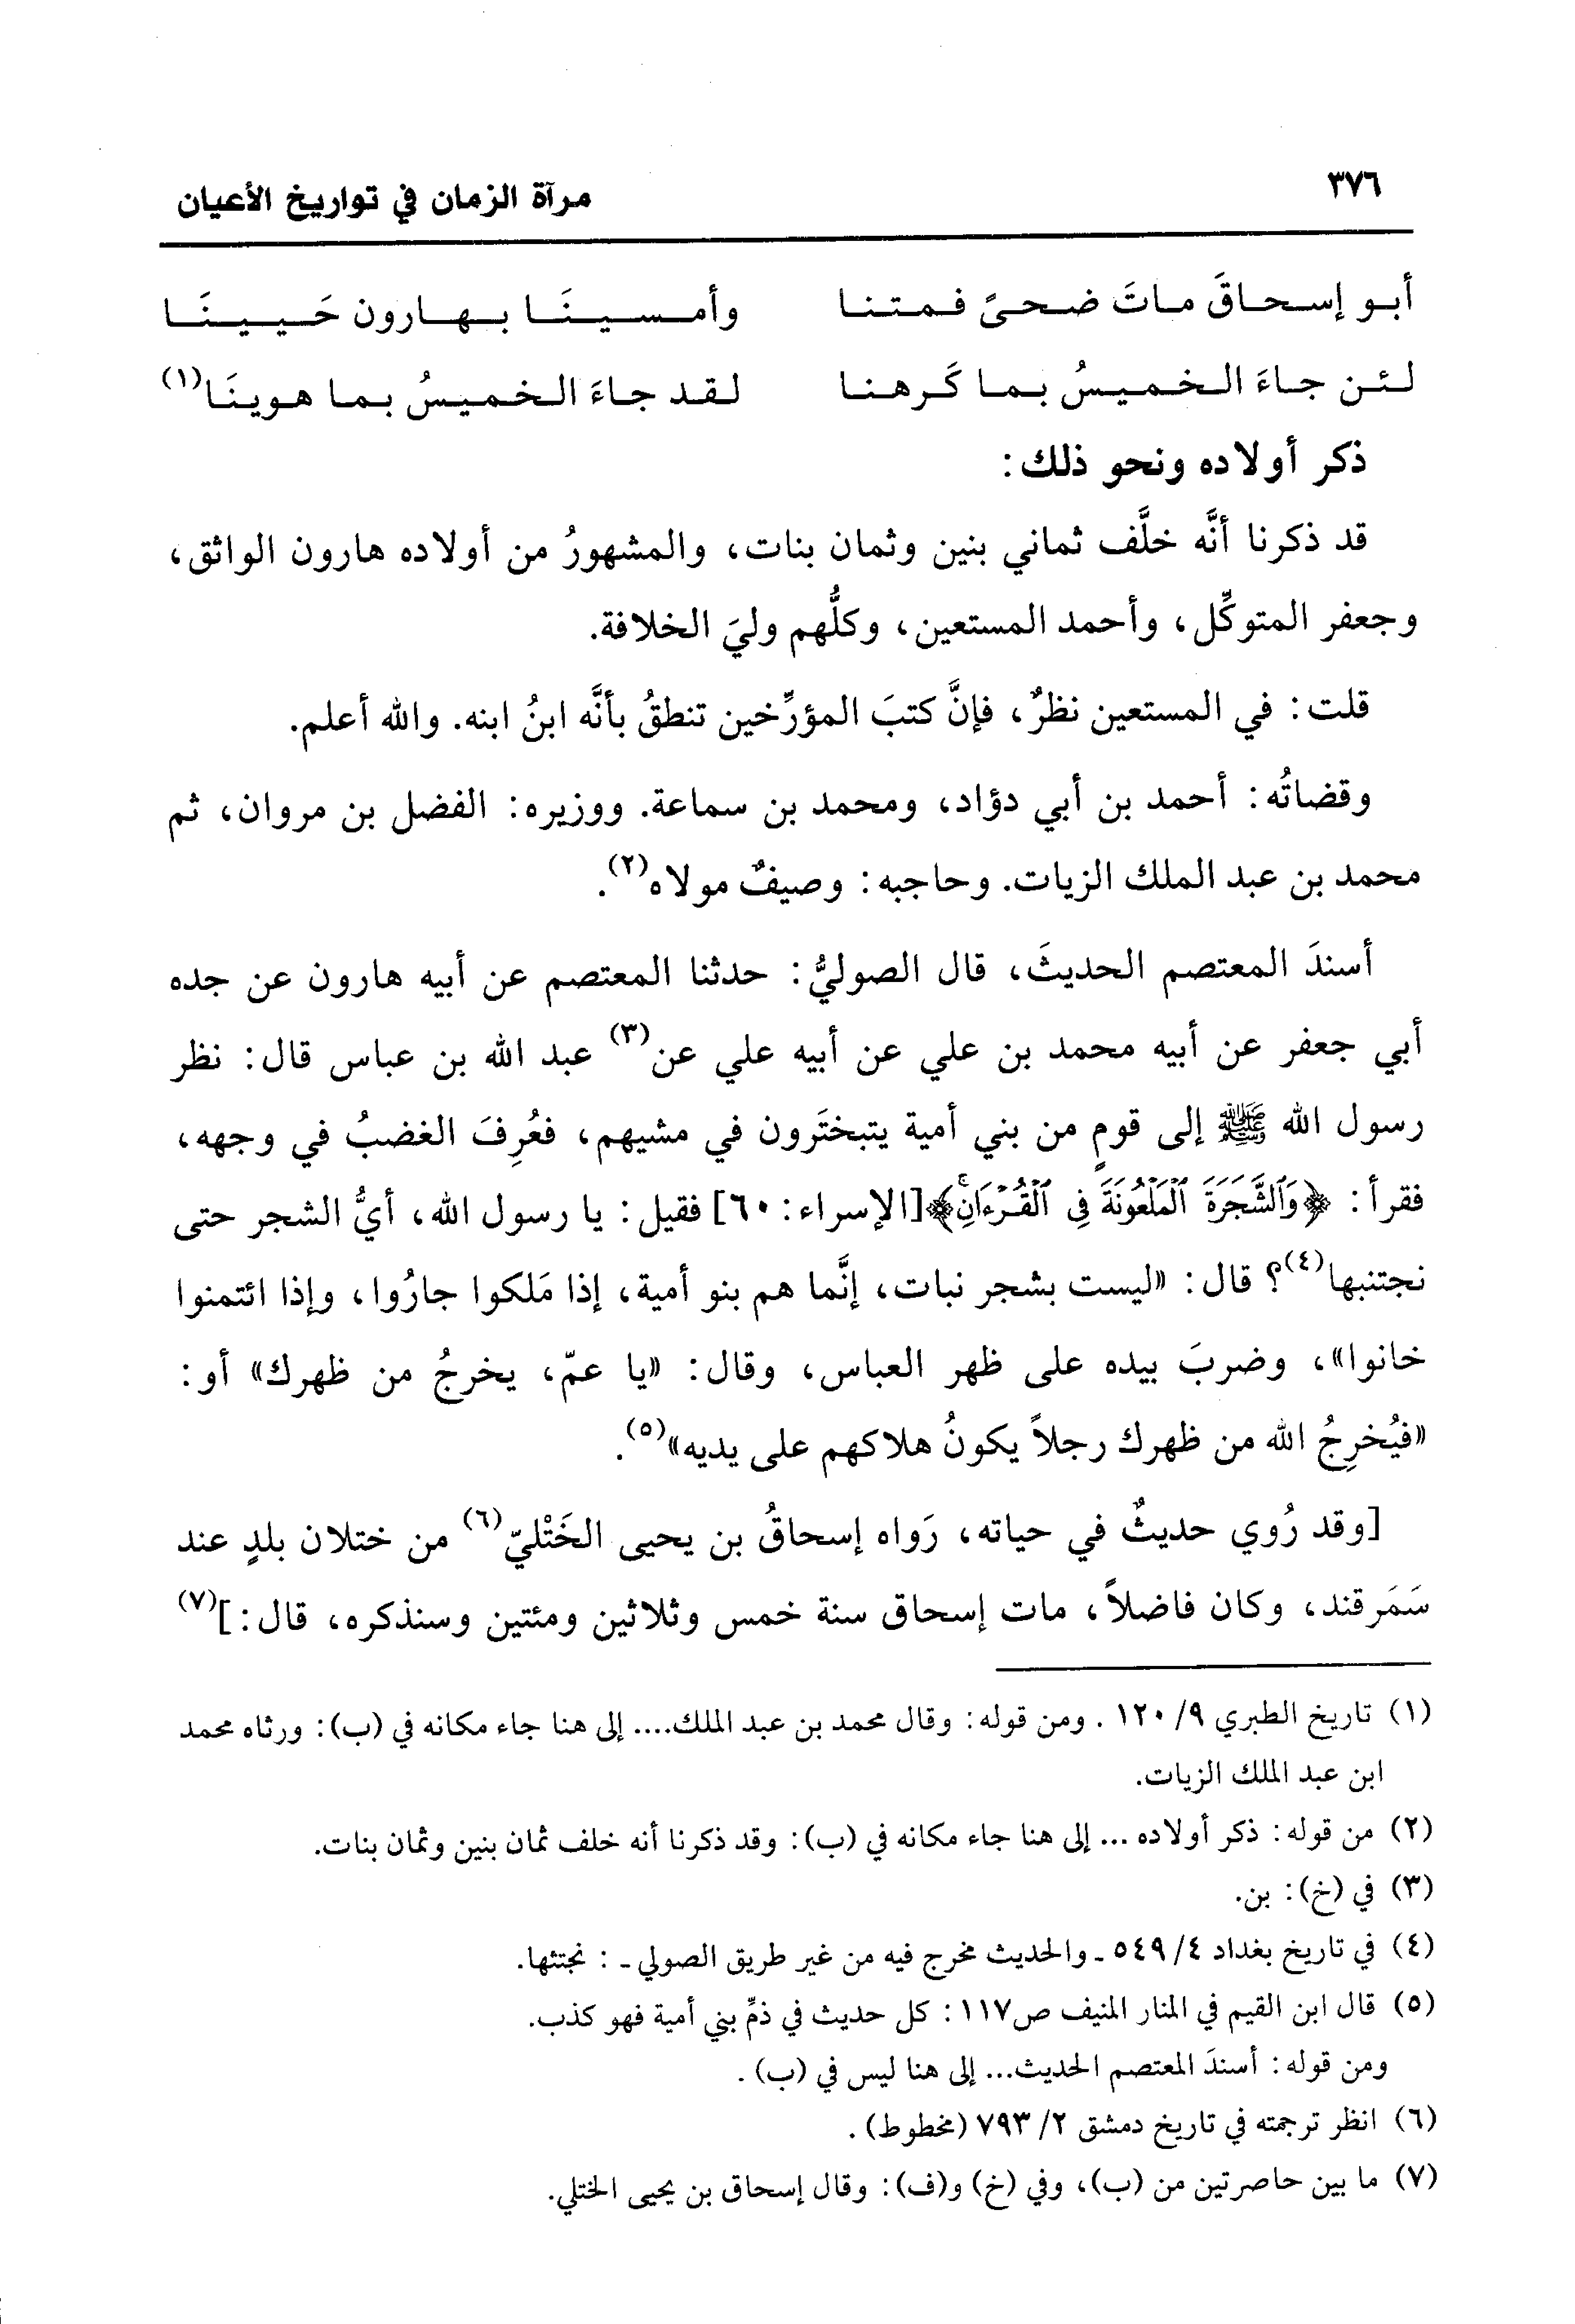 ٣٧٦ مرآة الزمان في تواريخ الأعيان
أبو إسحاقَ ماتَ ضحىً فمتنا وأمسينَا بهارون حَيينَا
لئن جاءَ الخميسُ بما كَرهنا لقد جاءَ الخميسُ بما هوينَا(١)
ذكر أولاده ونحو ذلك:
قد ذكرنا أنَّه خلَّف ثماني بنين وثمان بنات، والمشهورُ من أولاده هارون الواثق،
وجعفر المتوكِّل، وأحمد المستعين، وكلُّهم وليَ الخلافة.
قلت: في المستعين نظرٌ، فإنَّ كتبَ المؤرِّخين تنطقُ بأنَّه ابنُ ابنه. والله أعلم.
وقضاتُه: أحمد بن أبي دؤاد، ومحمد بن سماعة. ووزيره: الفضل بن مروان، ثم
محمد بن عبد الملك الزيات. وحاجبه: وصيفٌ مولاه(٢).
أسندَ المعتصم الحديثَ، قال الصوليُّ: حدثنا المعتصم عن أبيه هارون عن جده
أبي جعفر عن أبيه محمد بن علي عن أبيه علي عن(٣) عبد الله بن عباس قال: نظر
رسول الله ﷺ إلى قومٍ من بني أمية يتبختَرون في مشيهم، فعُرِفَ الغضبُ في وجهه،
فقرأ: ﴿وَٱلشَّجَرَةَ ٱلۡمَلۡعُونَةَ فِي ٱلۡقُرۡءَانِۚ﴾[الإسراء: ٦٠] فقيل: يا رسول الله، أيُّ الشجر حتى
نجتنبها(٤)؟ قال: «ليست بشجر نبات، إنَّما هم بنو أمية، إذا مَلكوا جارُوا، وإذا ائتمنوا
خانوا»، وضربَ بيده على ظهر العباس، وقال: «يا عمّ، يخرجُ من ظهرك» أو:
«فيُخرِجُ الله من ظهرك رجلاً يكونُ هلاكهم على يديه»(٥).
[وقد رُوي حديثٌ في حياته، رَواه إسحاقُ بن يحيى الخَتْليّ(٦) من ختلان بلدٍ عند
سَمَرقند، وكان فاضلاً، مات إسحاق سنة خمس وثلاثين ومئتين وسنذكره، قال:](٧)
(١) تاريخ الطبري ٩/ ١٢٠. ومن قوله: وقال محمد بن عبد الملك.... إلى هنا جاء مكانه في (ب): ورثاه محمد
ابن عبد الملك الزيات.
(٢) من قوله: ذكر أولاده ... إلى هنا جاء مكانه في (ب): وقد ذكرنا أنه خلف ثمان بنين وثمان بنات.
(٣) في (خ): بن.
(٤) في تاريخ بغداد ٤/ ٥٤٩ ـ والحديث مخرج فيه من غير طريق الصولي ـ : نجتثها.
(٥) قال ابن القيم في المنار المنيف ص١١٧: كل حديث في ذمِّ بني أمية فهو كذب.
ومن قوله: أسندَ المعتصم الحديث... إلى هنا ليس في (ب).
(٦) انظر ترجمته في تاريخ دمشق ٢/ ٧٩٣ (مخطوط).
(٧) ما بين حاصرتين من (ب)، وفي (خ) و(ف): وقال إسحاق بن يحيى الختلي.